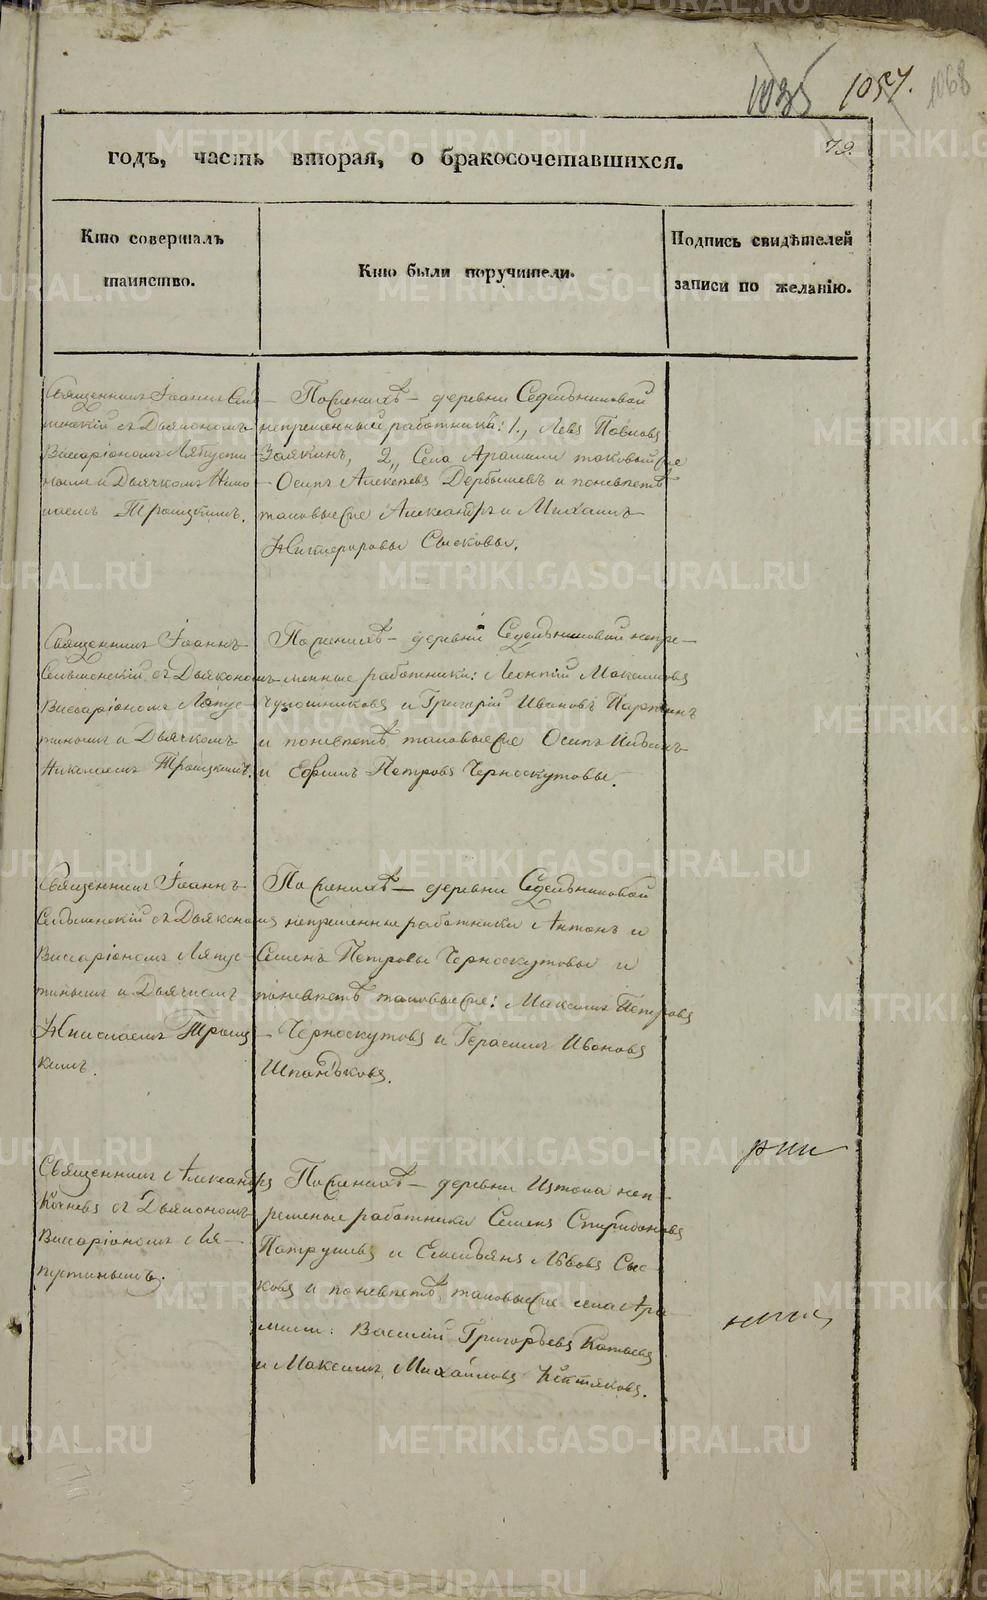 1035 1057. 1068
79.
годъ, часть вторая, о бракосочетавшихся.
Кто совершалъ
таинство.
Кто были поручители.
Подпись свидѣтелей
записи по желанію.
Священникъ Іоаннъ Сель-
менскій съ Дьякономъ
Виссаріономъ Ляпусти-
нымъ и Дьячкомъ Нико-
лаемъ Троицкимъ.
По женихѣ – деревни Седельниковой
непременный работникъ: 1., Левъ Павловъ
Заякинъ, 2,, Села Арамили таковый же
Осипъ Алексѣевъ Дербышевъ и по невѣстѣ
таковые же Александръ и Михаилъ
Никифоровы Сысковы.
Священникъ Іоаннъ
Сельменскій съ Дьякономъ
Виссаріономъ Ляпус-
тинымъ и Дьячкомъ
Николаемъ Троицкимъ.
По женихѣ – деревни Седельниковой непре-
менные работники: Леонтій Максимовъ
Чурошниковъ и Григорій Ивановъ
и по невѣстѣ таковые же Осипъ
и Ефимъ Петровъ Черноскутовы.
Священникъ Іоаннъ
Сельменскій съ Дьякономъ
Виссаріономъ Ляпус-
тинымъ и Дьячкомъ
Николаемъ Троиц-
кимъ.
По женихѣ – деревни Седельниковой
непременные работники Антонъ и
Семенъ Петровы Черноскутовы и
по невѣстѣ таковые же: Максимъ Петровъ
Черноскутовъ и Герасимъ Ивановъ
Шпаньковъ.
Священникъ Александръ
Кочневъ съ Дьякономъ
Виссаріономъ Ля-
пустинымъ.
По женихѣ – деревни Истока неп-
ременные работники Семенъ Спиридоновъ
Патрушевъ и Емельянъ Львовъ Сыс-
ковъ и по невѣстѣ таковые же села Ара-
мили: Василій Григорьевъ Катаевъ
и Максимъ Михайловъ Коптяковъ.
METRIKI.GASO-URAL.RU